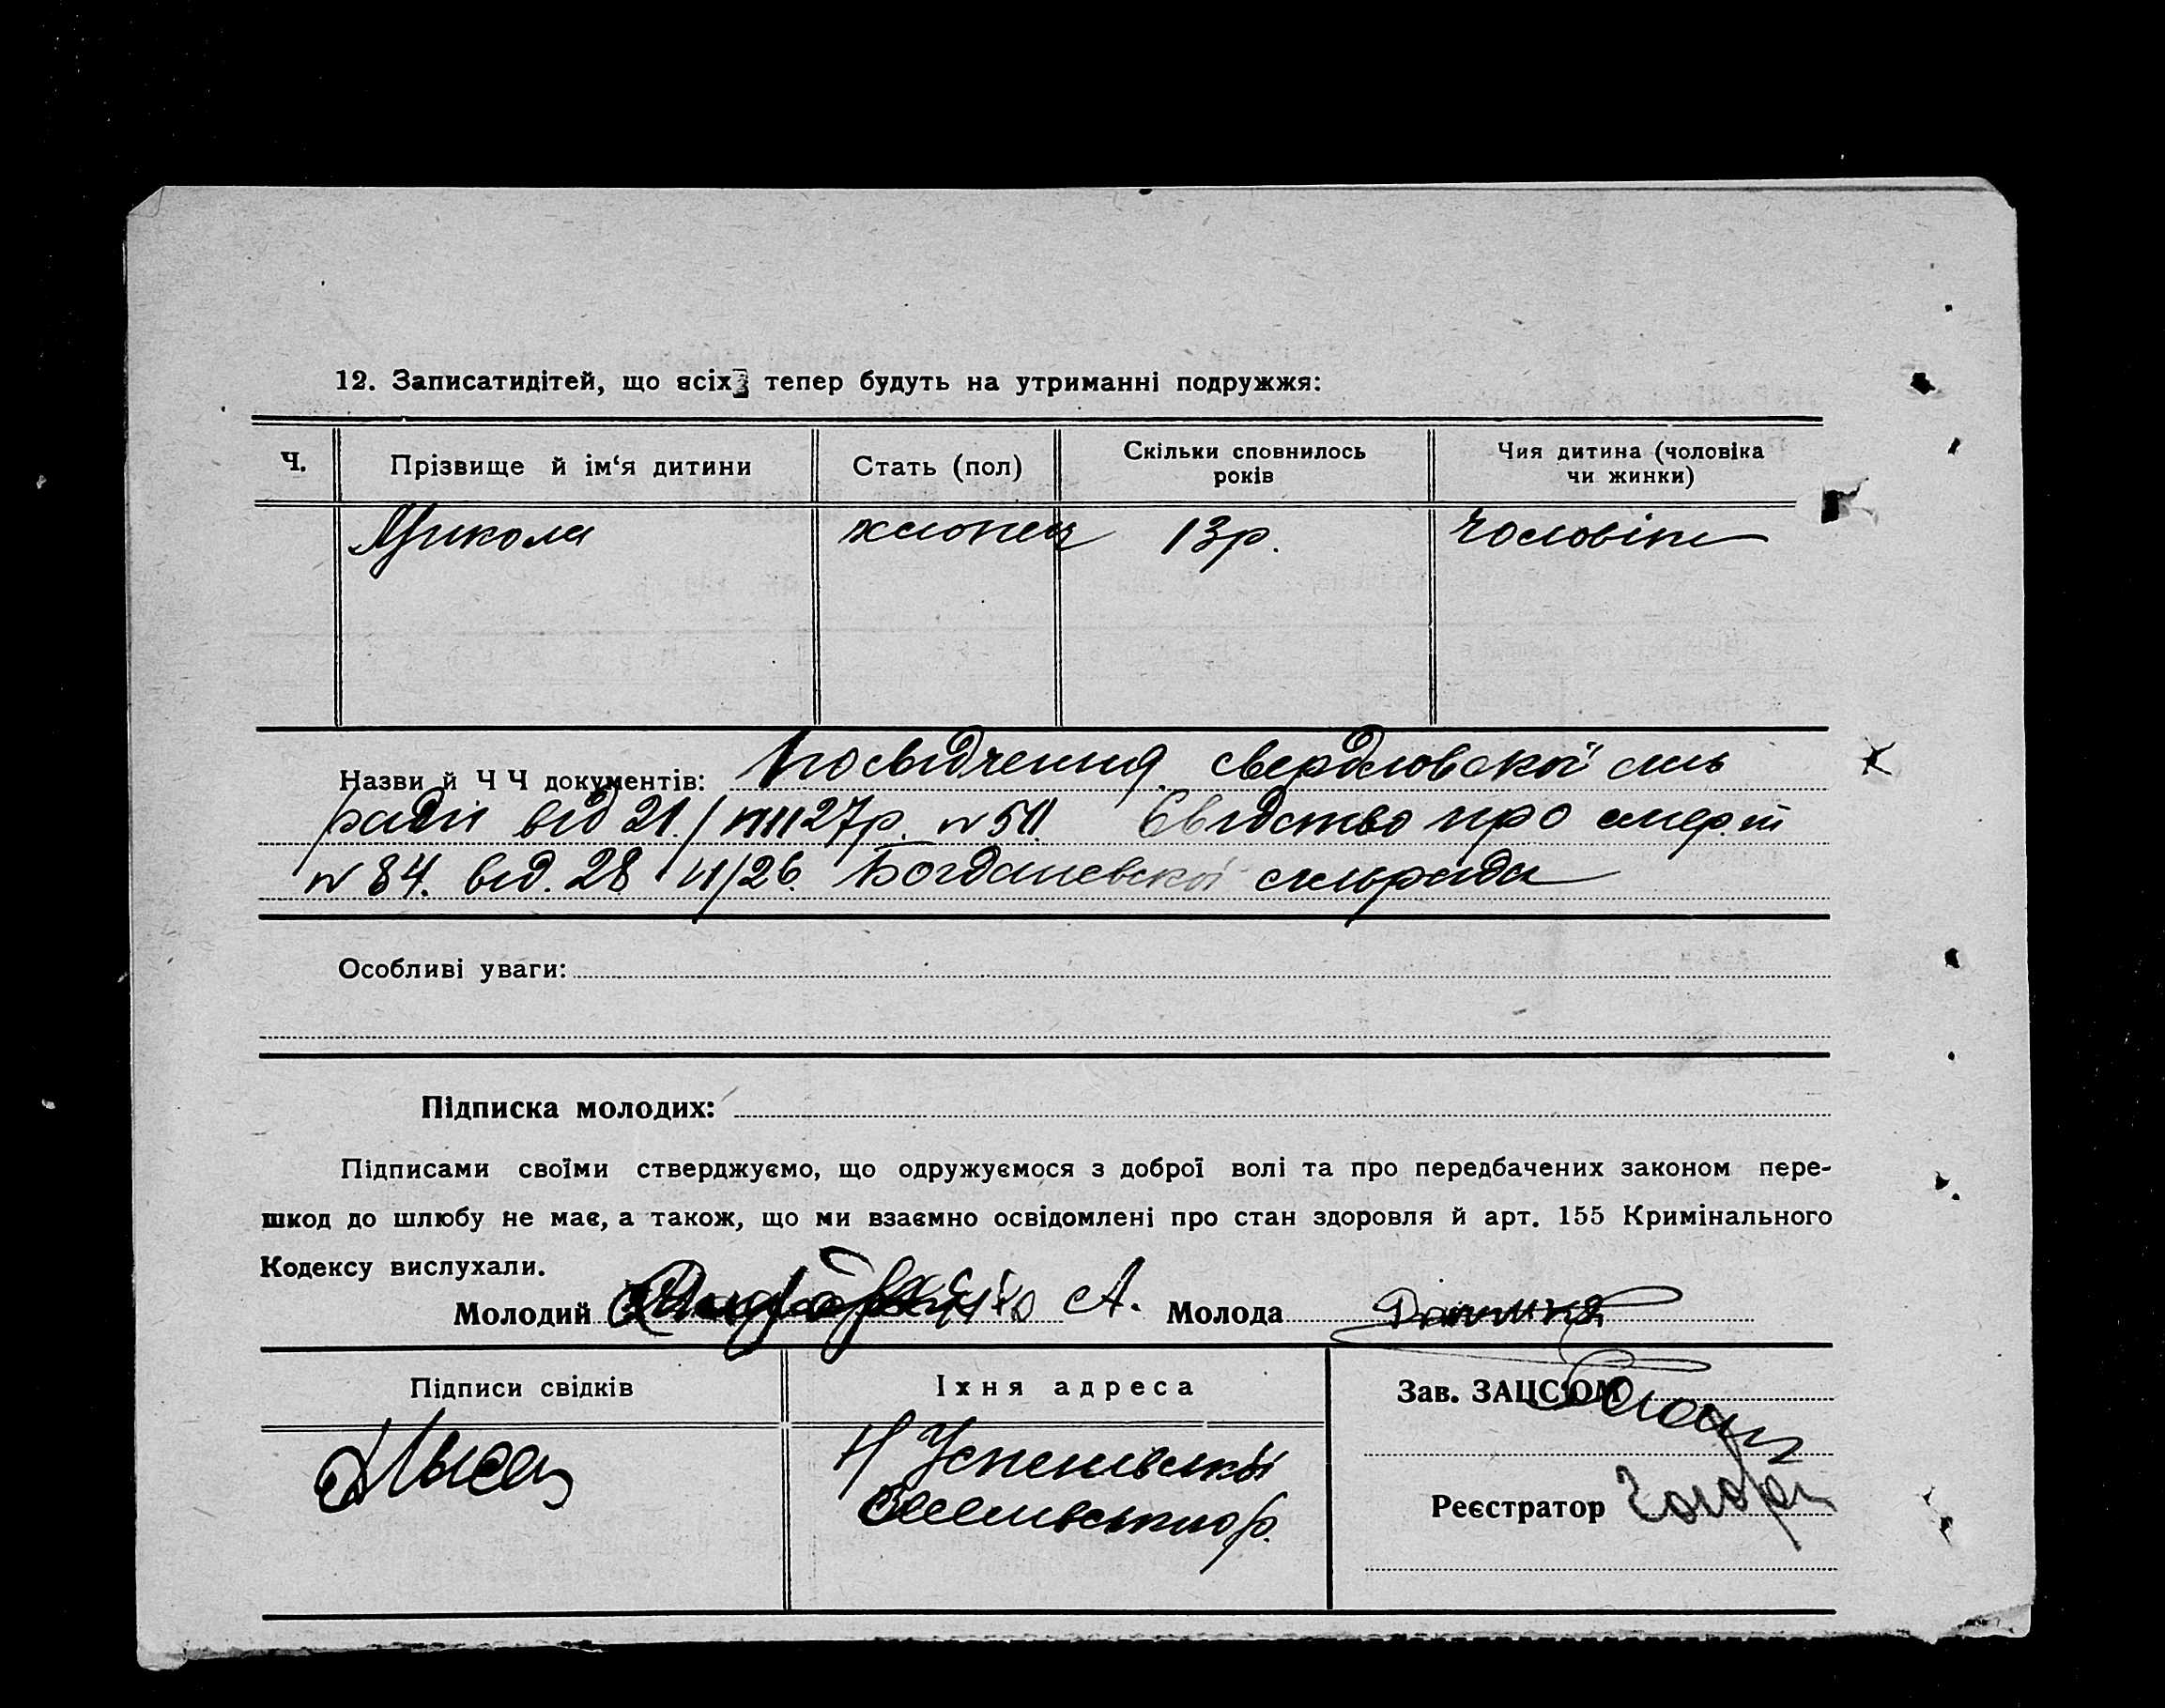 12. Записатидітей, що всіх тепер будуть на утриманні подружжя:
Ч.
Прізвище й ім‘я дитини
Стать (пол)
Скільки сповнилось
років
Чия дитина (чоловіка
чи жинки)
Микола хлопец 13р. Чоловіка
Назви й Ч Ч документів: Посвідчення свердловской силь
ради від 21./VIII 27р. N 511. Євідство про смерт
N 84. від. 28 VI/26. Богданевской сильрада
Особливі уваги:
Підписка молодих:
Підписами своїми стверджуємо, що одружуємося з доброї волі та про передбачених законом пере-
шкод до шлюбу не має, а також, що ми взаємно освідомлені про стан здоровля й арт. 155 Кримінального
Кодексу вислухали.
Молодий А. Молода
Підписи свідків
Їхня адреса
Зав. ЗАЦС‘ОМ
Н Успенівской
Реєстратор